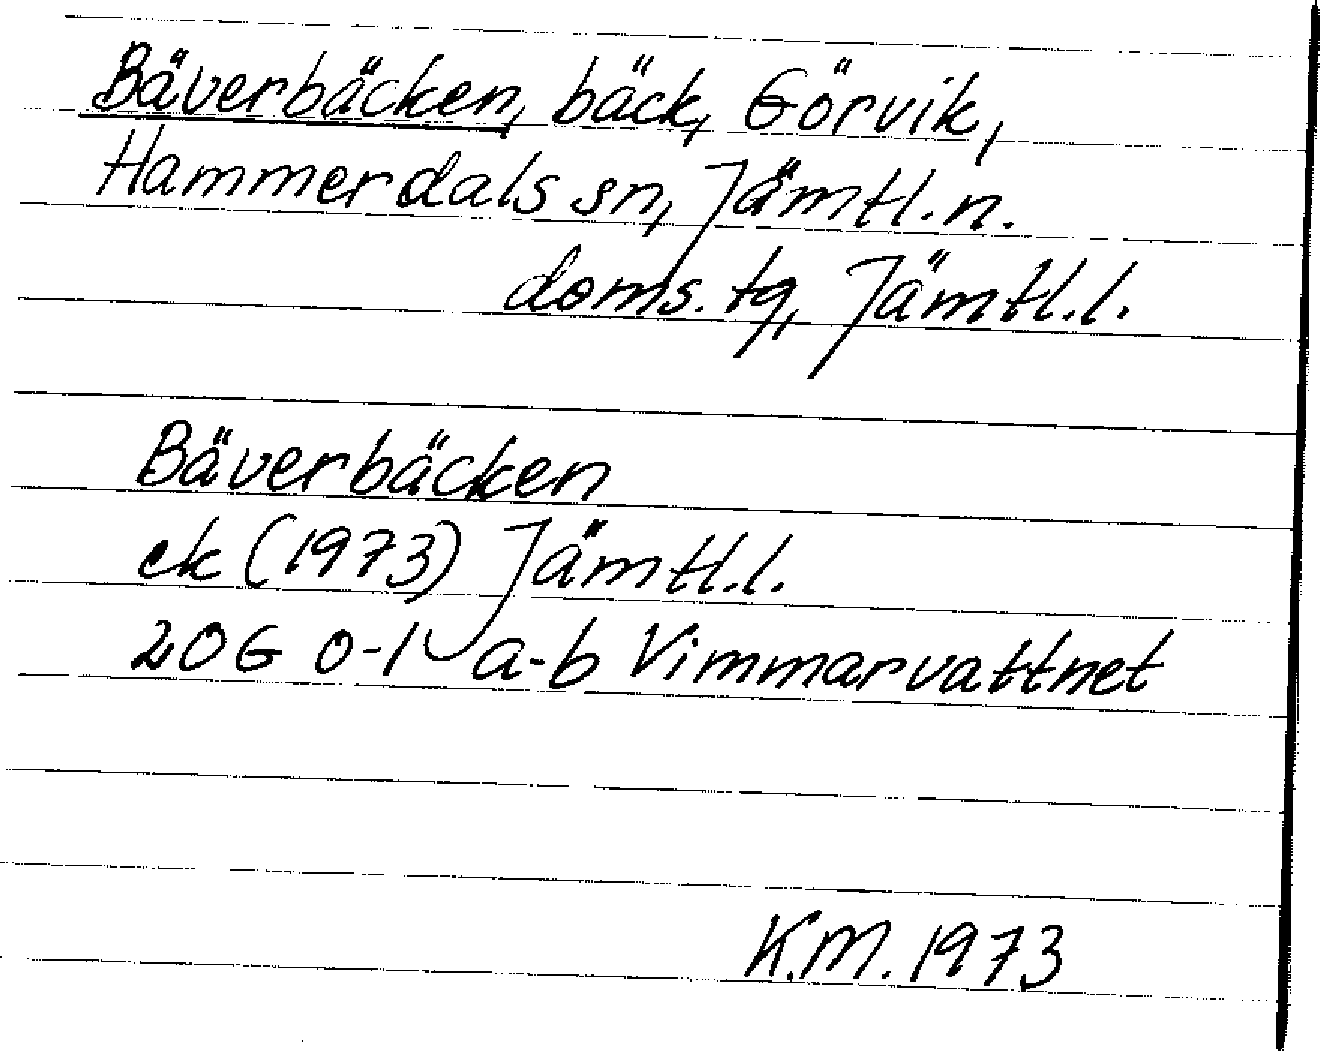 Bäverbäcken, bäck, Görvik,
Hammerdals sn, Jämtl. n.
doms. tg, Jämtl. l.
Bäverbäcken
ek (1973) Jämtl. l.
20G 0-1 a-b Vimmarvattnet
K.M. 1973